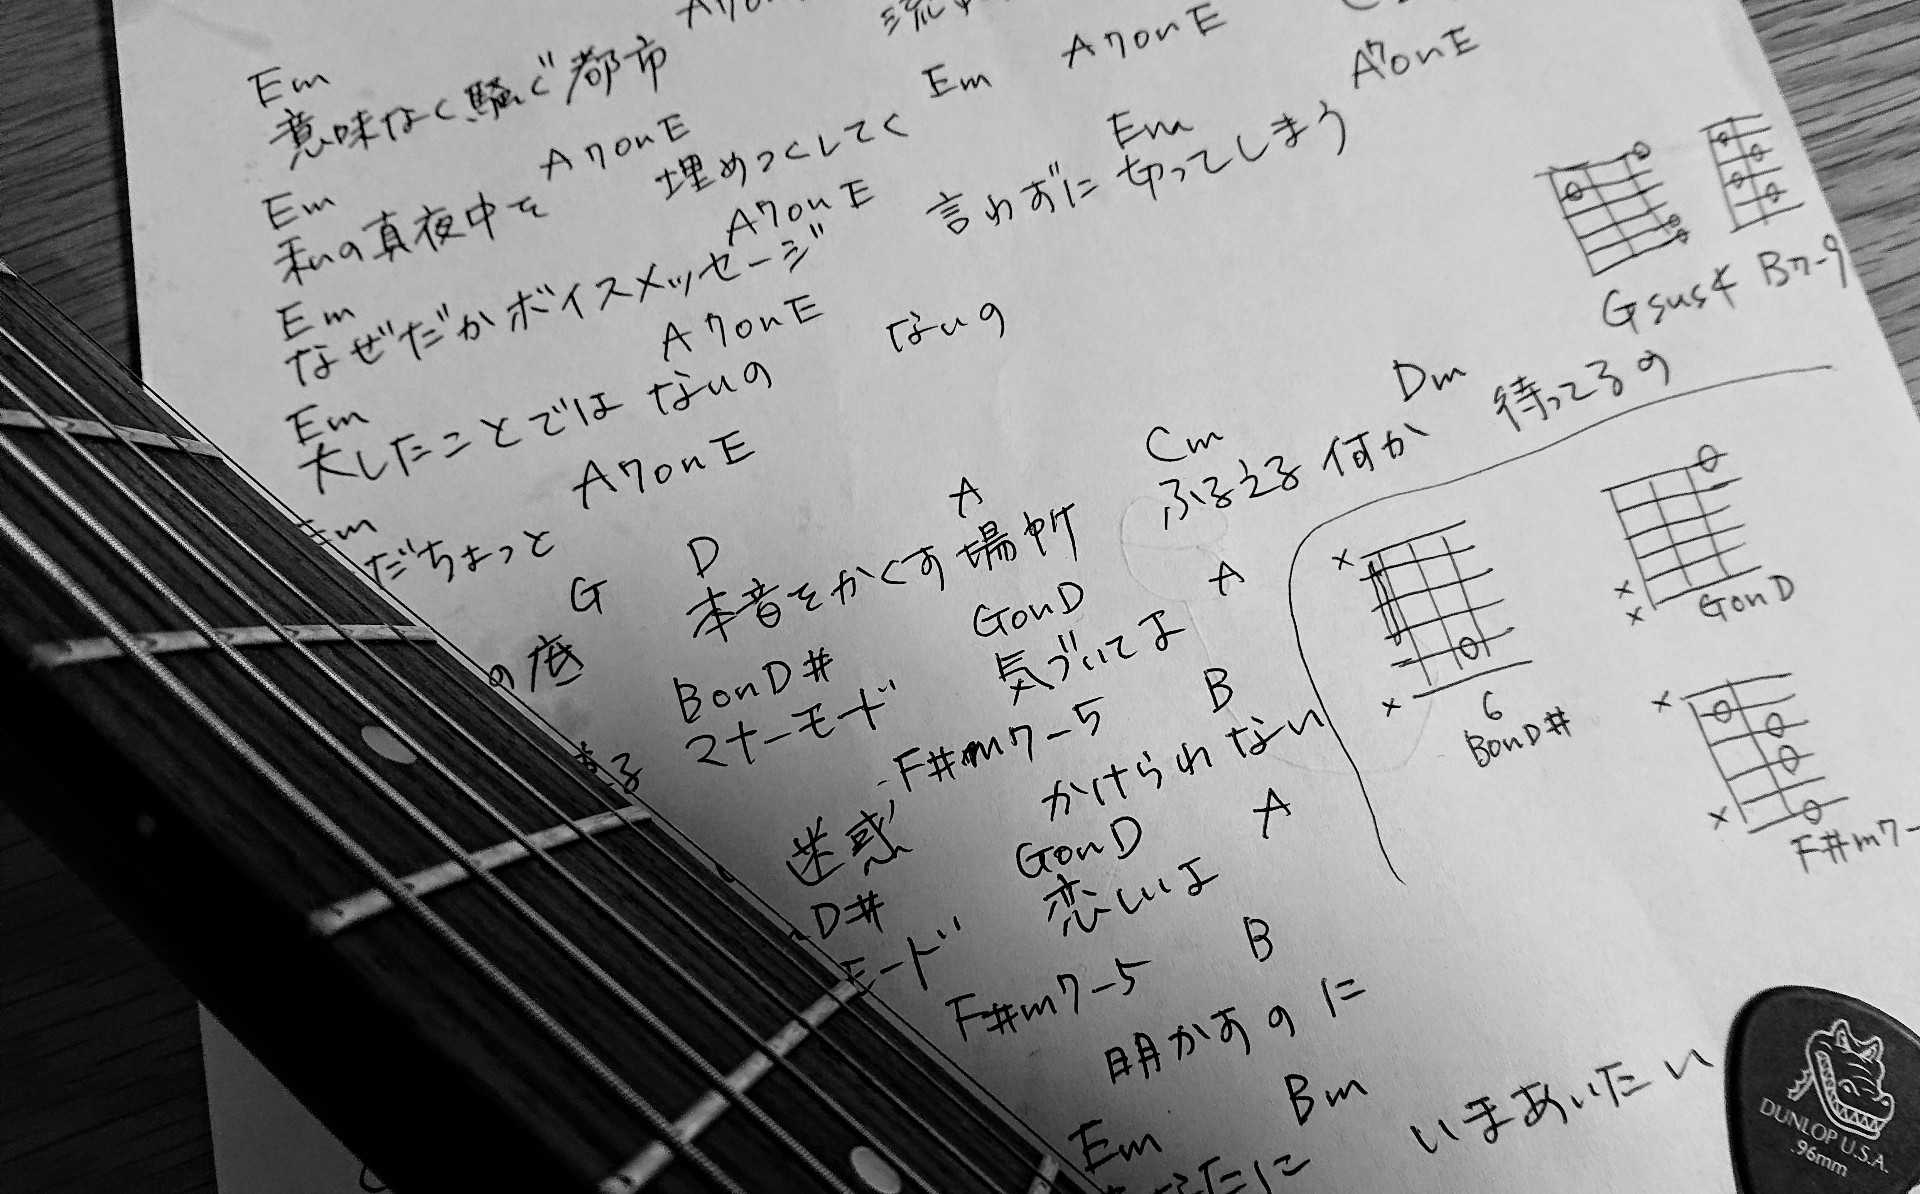 Em
意味なく騒ぐ都市
Em A7onE Em A7onE
私の真夜中を 埋めつくしてく
Em A7onE Em A7onE
なぜだかボイスメッセージ 言わずに切ってしまう
Em A7onE
大したことでは ないの ないの
Em A7onE
だちょっと
G D A Cm Dm
の底 本音をかくす場所 ふるえる何か 待ってるの
BonD# GonD A
マナーモード 気づいてよ
F#m7-5 B
迷惑 かけられない
D# GonD A
モード 恋しいよ
F#m7-5 B
明かすのに
Em Bm
いまあいたい
Gsus4 B7-9
GonD
6
BonD#
F#m7-
DUNLOP U.S.A.
.96mm